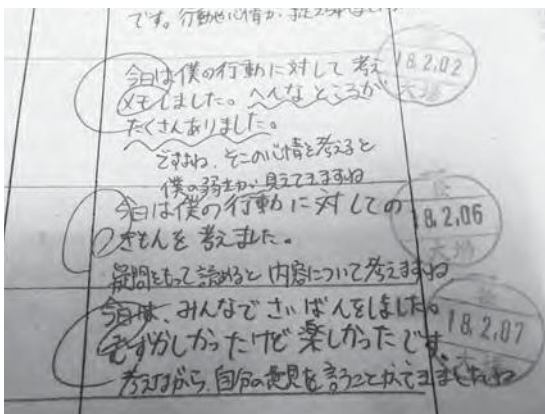 です。行動や心情が、捉えられました
今日は僕の行動に対して考え
メモしました。へんなところが
たくさんありました。
ですね、そこの心情を考えると
僕の弱さが見えてきますね
18.2.02
大場
今日は僕の行動に対しての
ぎもんを考えました。
18.2.06
大場
疑問をもって読めると内容について考えますね
今日は、みんなでさいばんをしました。
むずかしかったけど楽しかったです。
18.2.07
大場
考えながら、自分の意見を言うことができましたね